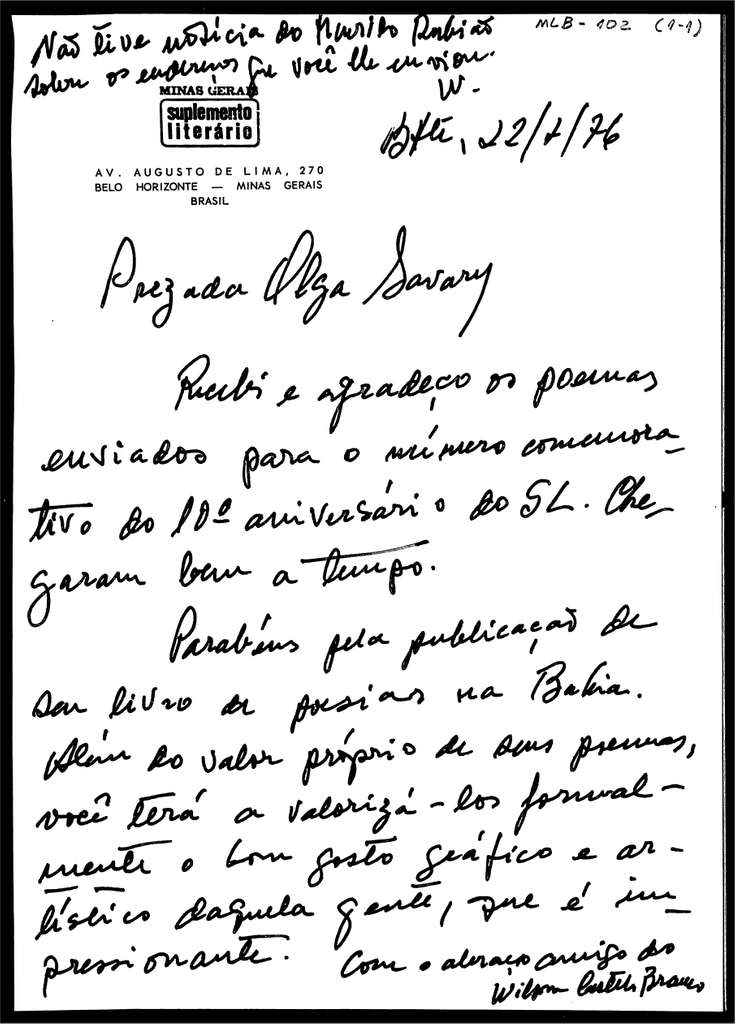 Não tive notícia do Murilo Rubião
sobre os endereços que você lhe enviou.
W.
MLB - 102 (1-1)
MINAS GERAIS
suplemento
literário
AV. AUGUSTO DE LIMA, 270
BELO HORIZONTE — MINAS GERAIS
BRASIL
BHte, 22/7/76
Prezada Olga Savary
Recebi e agradeço os poemas
enviados para o número comemora-
tivo do 10º aniversário do SL. Che-
garam bem a tempo.
Parabéns pela publicação de
seu livro de poesias na Bahia.
Além do valor próprio de seus poemas,
você terá a valorizá-los formal-
mente o bom gosto gráfico e ar-
tístico daquela gente, que é im-
pressionante.
Com o abraço amigo do
Wilson Castelo Branco